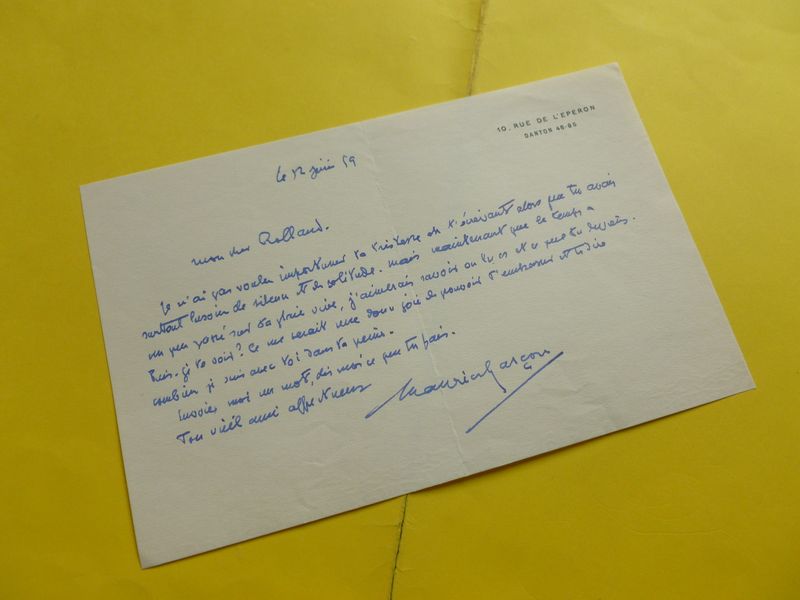 10, RUE DE L'EPERON
DANTON 48-95
Le 12 juin 59
mon cher Rolland.
Je n'ai pas voulu importuner ta tristesse en t'écrivant alors que tu avais
surtout besoin de silence et de solitude. mais maintenant que le temps a
un peu passé sur ta plaie vive, j'aimerais savoir où tu es et ce que tu deviens.
Puis-je te voir? Ce me serait une douce joie de pouvoir t'embrasser et te dire
combien je suis avec toi dans ta peine.
Envoies moi un mot, dis moi ce que tu fais.
Ton vieil ami affectueux
Maurice Garçon